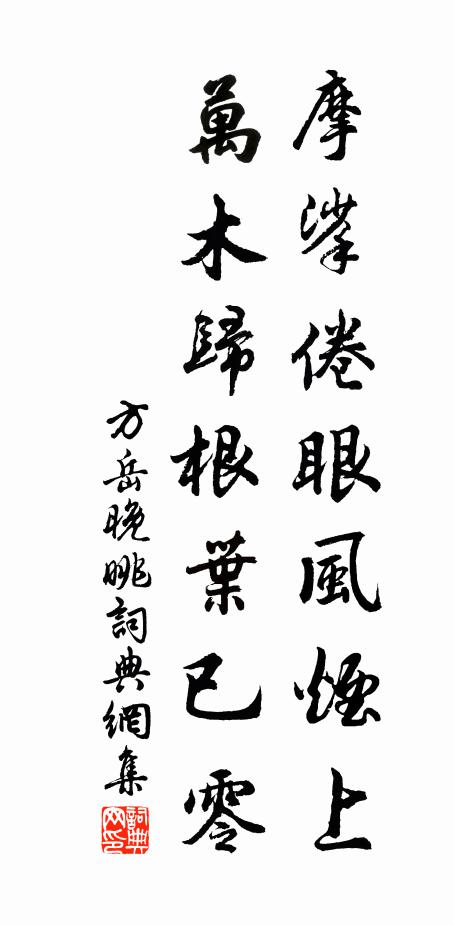 摩挲倦眼風煙上
萬木歸根葉已零
方岳晚眺詞典網集
詞典网印